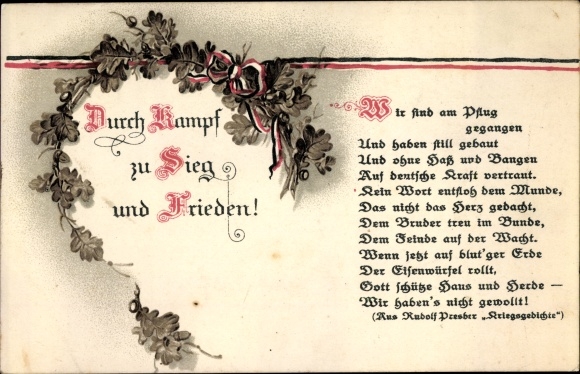 Durch Kampf
zu Sieg
und Frieden!
Wir sind am Pflug
gegangen
Und haben still gebaut
Und ohne Haß und Bangen
Auf deutsche Kraft vertraut.
Kein Wort entfloh dem Munde,
Das nicht das Herz gedacht,
Dem Bruder treu im Bunde,
Dem Feinde auf der Wacht.
Wenn jetzt auf blut'ger Erde
Der Eisenwürfel rollt,
Gott schütze Haus und Herde —
Wir haben's nicht gewollt!
(Aus Rudolf Presber „Kriegsgedichte")